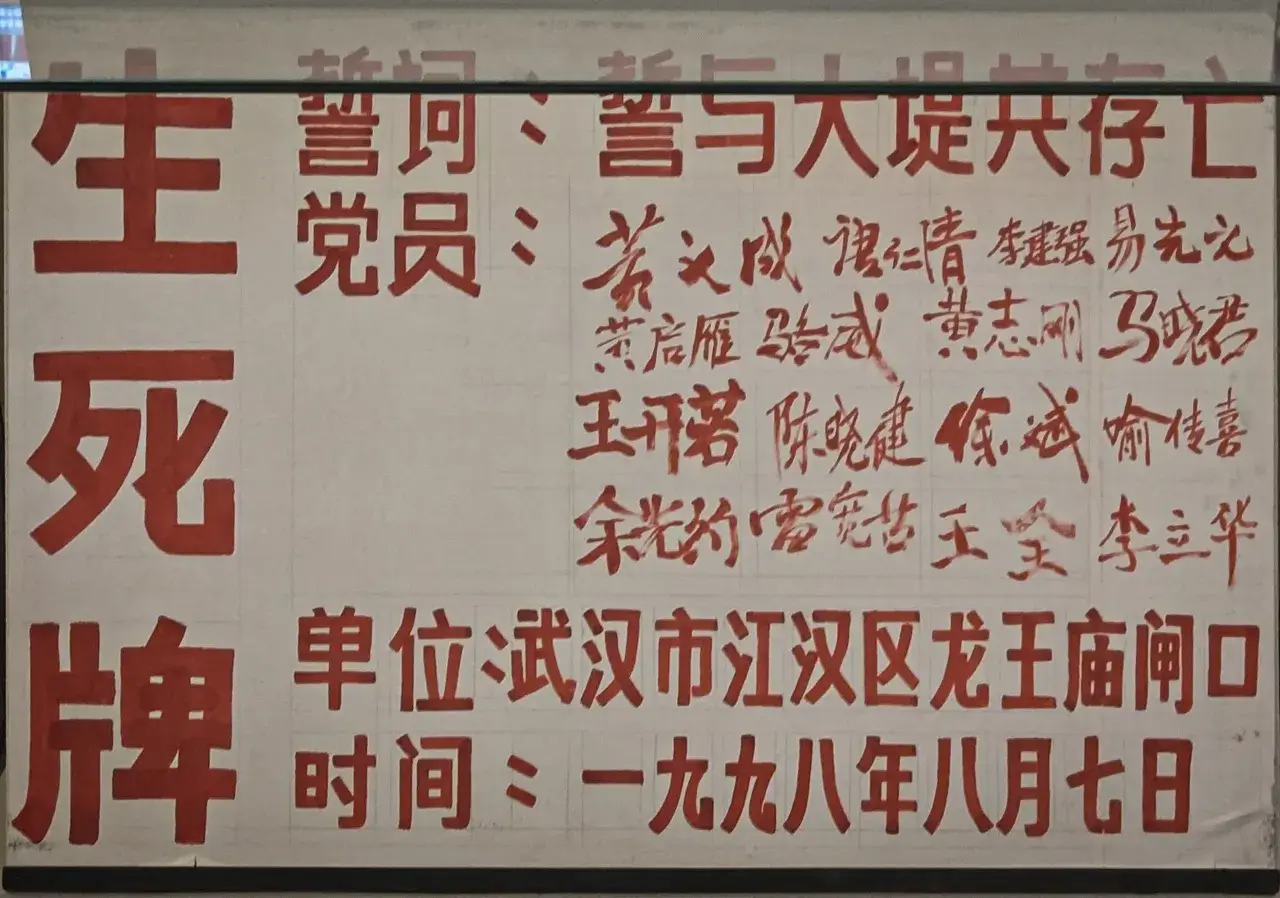 生死牌
誓词：誓与大堤共存亡
党员：黄义成 唐仁清 李建强
黄启雁 骆威 黄志刚 马晓君
王开若 陈晓健 徐斌 喻传喜
王全 李立华
单位：武汉市江汉区龙王庙闸口
时间：一九九八年八月七日